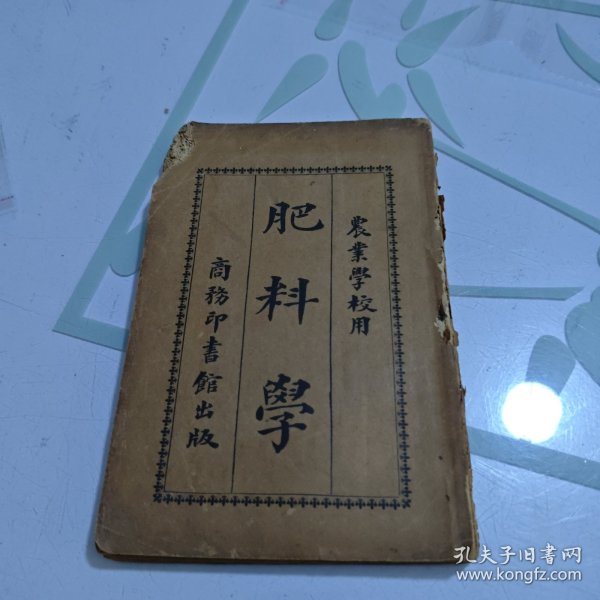 農業學校用
肥料學
商務印書館出版
孔夫子旧书网
www.kongfz.com